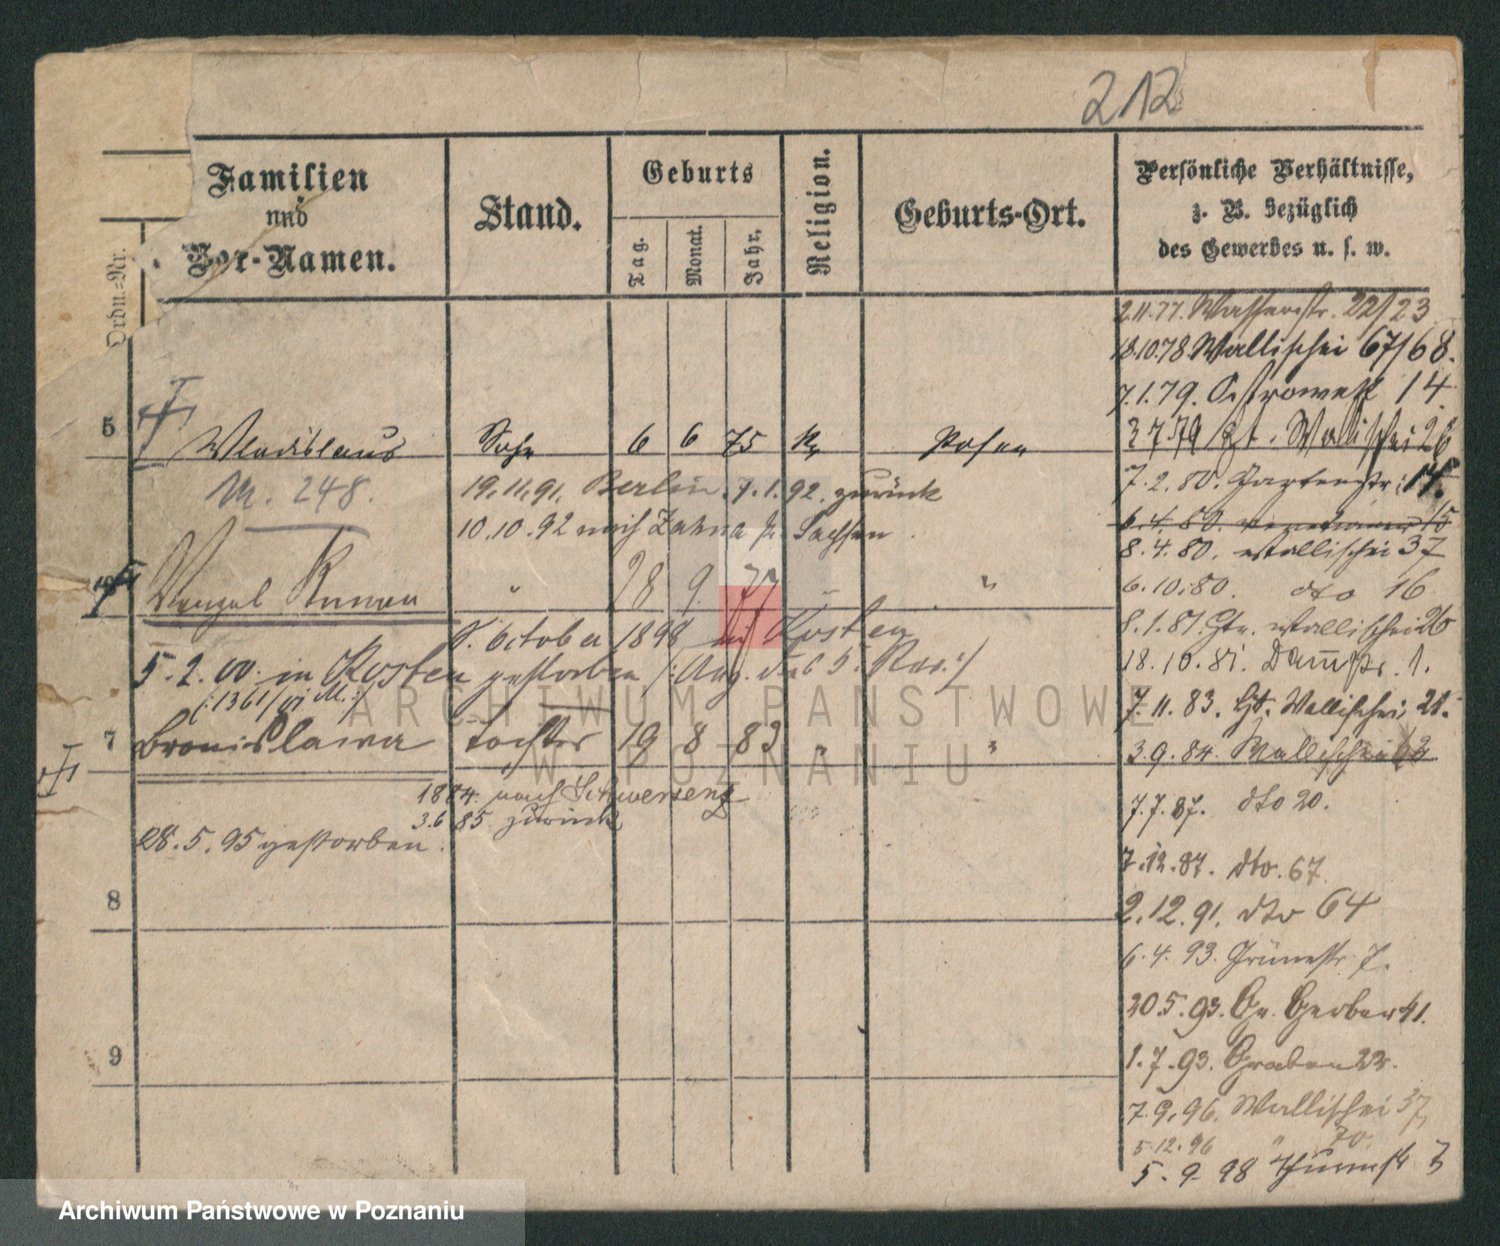 212
Ordn.-Nr.
Familien
und
Vor-Namen.
Stand.
Geburts
Tag.
Monat.
Jahr.
Religion.
Geburts-Ort.
Persönliche Verhältnisse,
z. B. bezüglich
des Gewerbes u. s. w.
2.11.77. Wasserstr. 22/23
18.10.78 Wallischei 67/68.
7.1.79. Ostrowek 14
5 Wladislaus Sohn 6 6 75 K. Posen
3.7.79 Gt. Wallischei 26
M. 248.
19.11.91. Berlin. 7.1.92. zurück
7.2.80. Gartenstr. 14.
10.10.92 nach Zahna Pr. Sachsen.
6.4.80. 15
8.4.80. Wallischei 37
Wenzel Roman " 28 9. 77 "
6.10.80. dto 16
8. October 1898 Kosten
8.1.81. Gtr. Wallischei 26
5.2.00. in Kosten gestorben
18.10.81. Dammstr. 1.
(:1361/VI M.:)
7.11.83. Gt. Wallischei 21.
7 Bronislawa Tochter 19 8 83 " "
3.9.84. Wallischei 62
1884 nach Schwersenz
7.7.87. dto 20.
3.6 85 zurück
28.5.95 gestorben.
7.12.87. dto. 67.
8
2.12.91. dto 64
6.4.93. Grünestr. 7.
20.5.93. Gr. Gerber 41.
9
1.7.93. Graben 22.
7.9.96. Wallischei 37,
5.12.96 " 70.
5.9.98 Thurmstr 3
ARCHIWUM PAŃSTWOWE
W POZNANIU
Archiwum Państwowe w Poznaniu